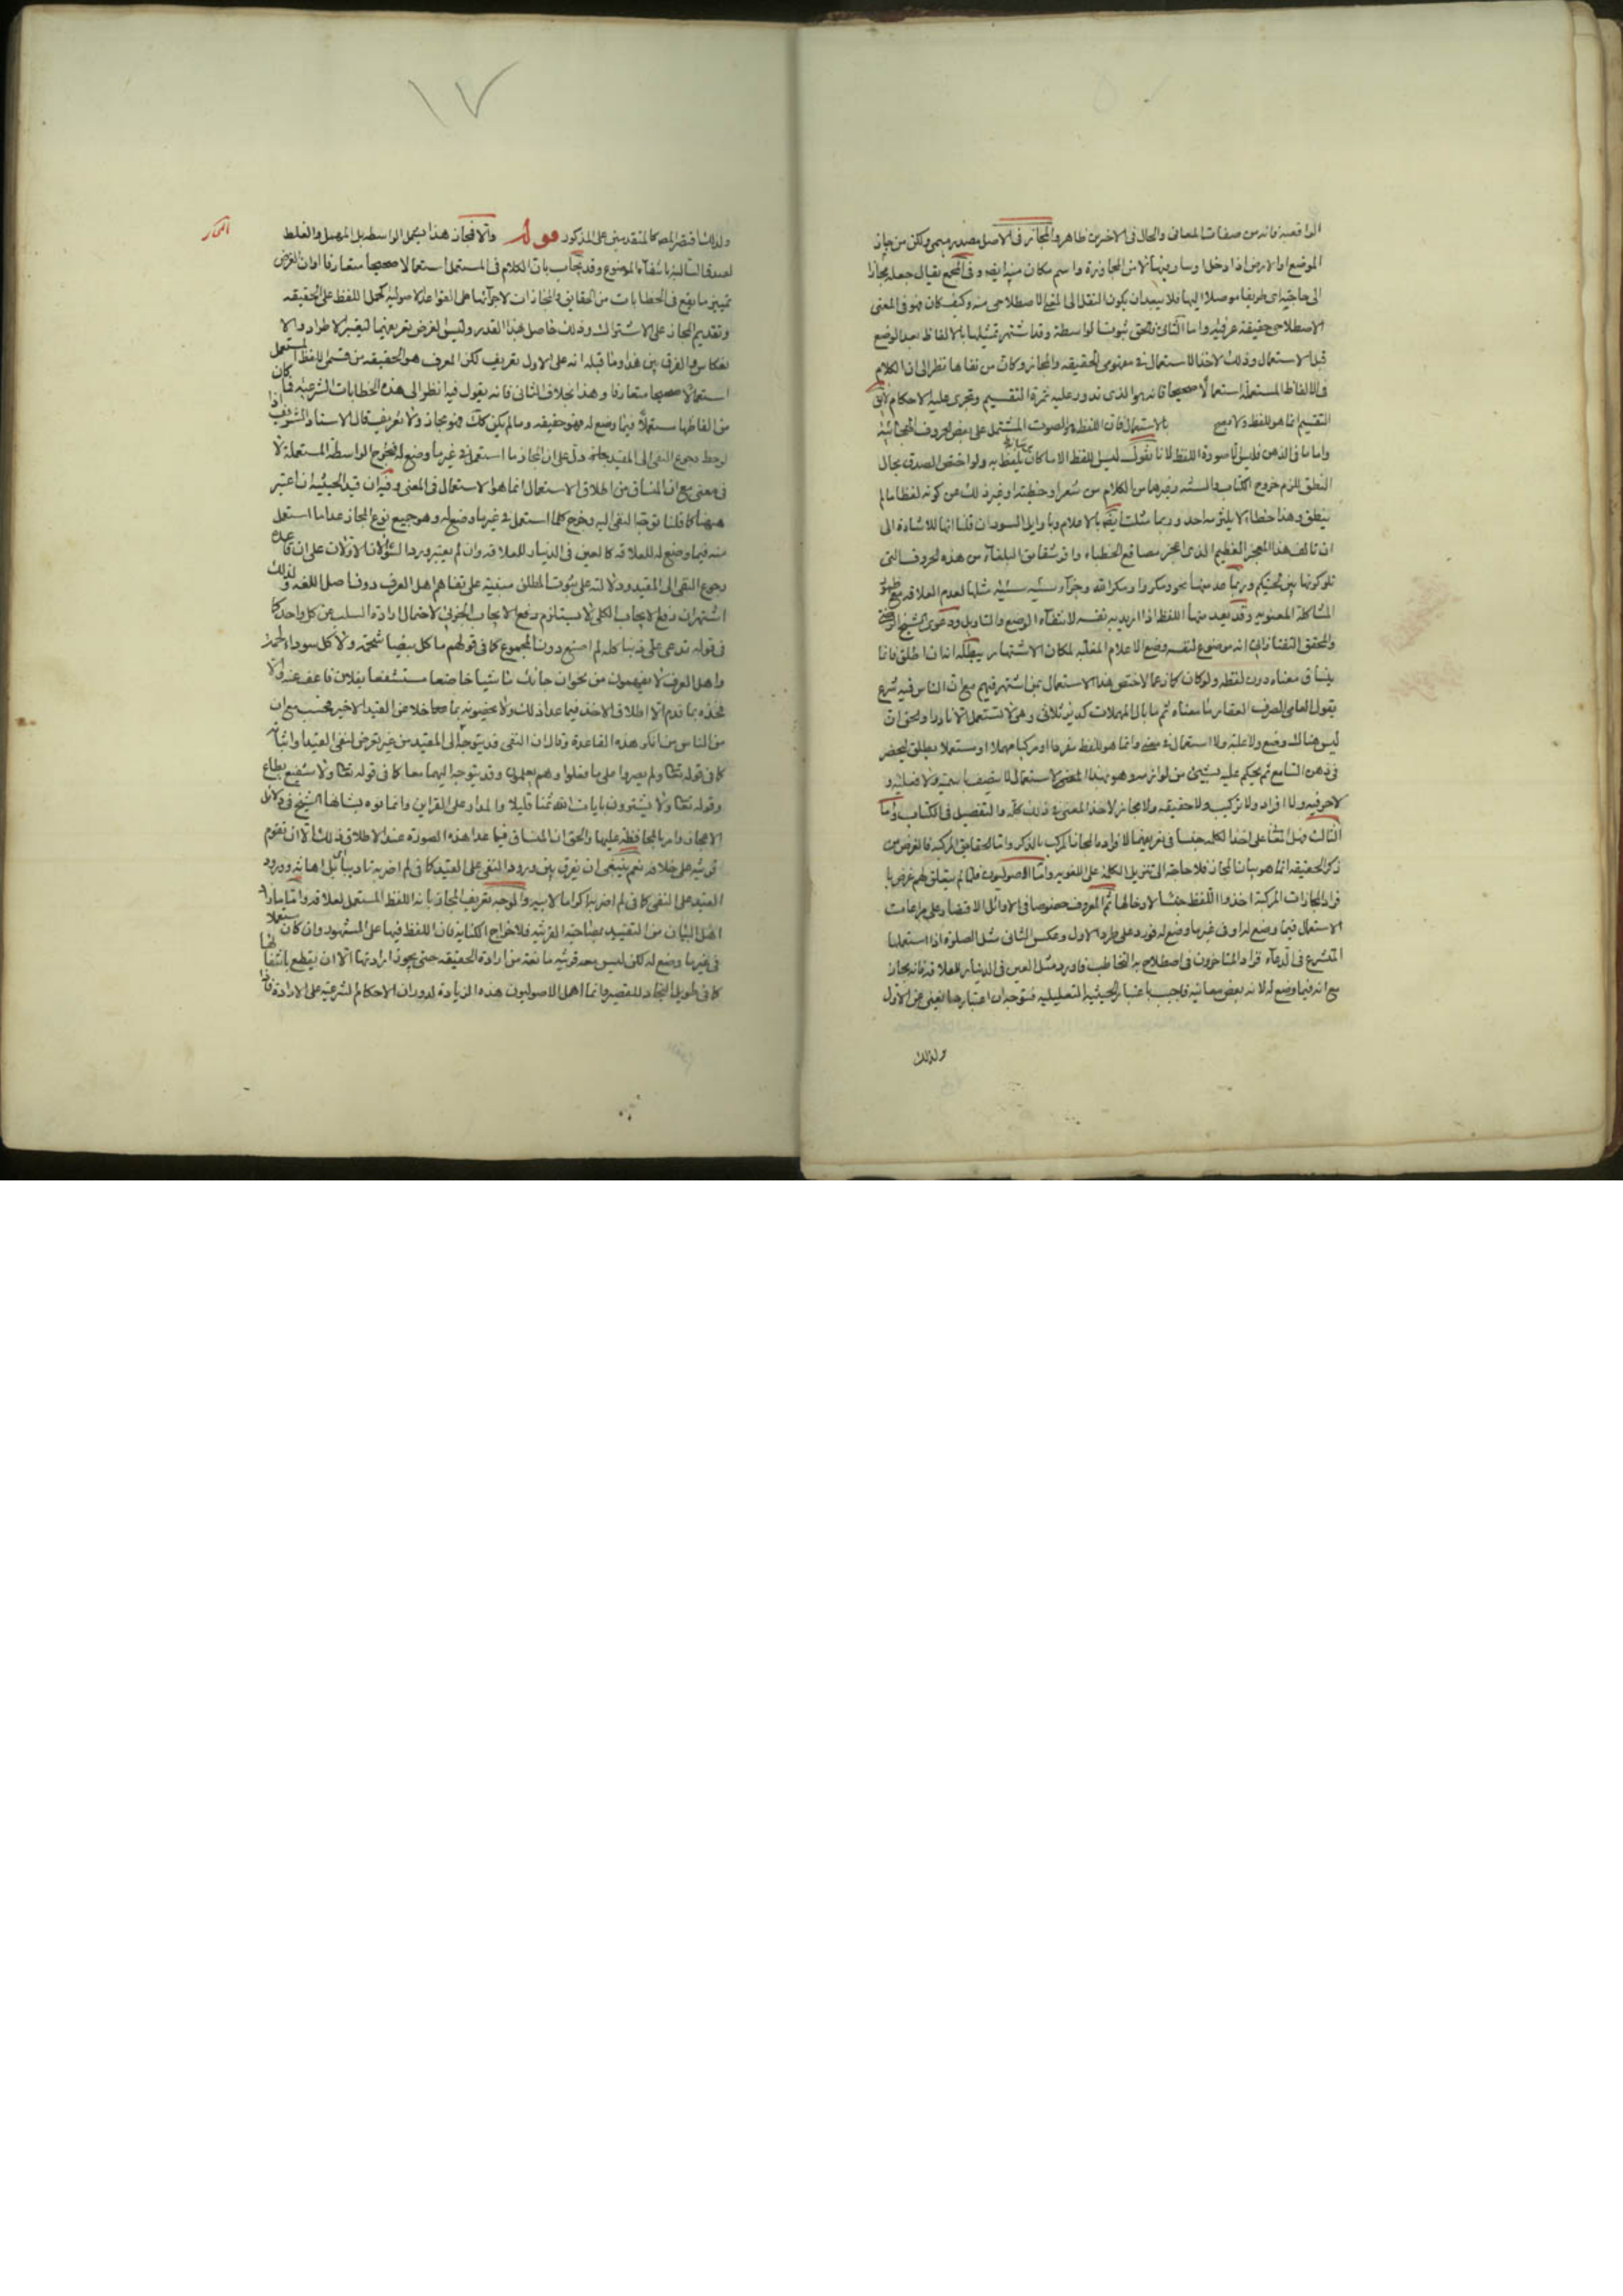 الواقعية فانه من صفات المعاني والحال في الاخرين ظاهر والمجاز في الاصل مصدر ميمي ولكن من جاز
الموضع او الارض اذا دخل او سار فيها لا من المجاوزة واسم مكان منه ايضا وفي المجمع يقال جعله مجازا
الى حاجته اي طريقا موصلا اليها فلا يبعد ان يكون النقل الى المعنى الاصطلاحي منه وكيف كان فهو في المعنى
الاصطلاحي حقيقة عرفية واما الثاني فالحق ثبوت الواسطة وقد اشتهر تمثيلها بالالفاظ بعد الوضع
قبل الاستعمال وذلك لاخذ الاستعمال في مفهومي الحقيقة والمجاز وكان من نفاها نظر الى ان الكلام
في الالفاظ المستعملة استعمالا صحيحا فانه هو الذي تدور عليه ثمرة التقسيم وتجري عليه الاحكام
التقسيم انما هو للفظ ولا يصح بالاستعمال فان اللفظ هو الصوت المشتمل على بعض الحروف الهجائية
واما ما في الذهن فليس الا صورة اللفظ لانا نقول ليس اللفظ الا ما كان يتلفظ به ولو اختص الصدق بحال
النطق للزم خروج الكتاب والسنة وغيرهما من الكلام من شعر او خطبة او غير ذلك عن كونه لفظا ما لم
ينطق وهذا خطا لا يلتزمه احد وربما مثلت ايضا بالاعلام وباوايل السور ان قلنا انها للاشارة الى
ان تالف هذا المعجز العظيم الذي اعجز مصاقع الخطباء من هذه الحروف التي
تلوكونها بين لحييكم وربما عد منها نحو ومكروا ومكر الله وجزاء سيئة سيئة مثلها لعدم العلاقة
المشاكلة المعنوية وقد يعد منها اللفظ اذا اريد به نفسه لانتفاء الوضع والتاويل ودعوى الشيخ الرضي
والمحقق التفتازاني انه موضوع لنفسه وضع الاعلام المغلبة لمكان الاشتهار يبطله انه ان اطلق فانما
ينساق معناه دون لفظه ولو كان كما زعما لاختص هذا الاستعمال بمن اشتهر فيهم مع ان الناس فيه شرع
يقول العامي الصرف العقار ما معناه ثم ما بال المهملات كديز ثلاثي وهي لا تستعمل الا نادرا والحق ان
ليس هنالك وضع ولا علمية ولا استعمال في معنى وانما هو اللفظ مفردا او مركبا مهملا او مستعملا يطلق ليحضر
في ذهن السامع ثم يحكم عليه بشيئ من لوازمه وهو بهذا المعنى لا يتصف باسمية ولا فعلية ولا
لا حرفية ولا افراد ولا تركيب ولا حقيقة ولا مجاز لاخذ المعنى في ذلك كله والتفصيل في الكتاب واما
الثالث على اخذ الكلمة جنسا في تعريفهما لافراد المجاز المركب بالذكر واما الحقايق المركبة فالغرض من
ذكر الحقيقة انما هو بيان المجاز فلا حاجة الى الكلمة على اللغوية واما الاصوليون فلما لم يتعلق لهم غرض
المجازات المركبة اخذوا اللفظ جنسا لادخالها ثم المعروف خصوصا في الاوائل الاقتصار على
الاستعمال فيما وضع له او في غير ما وضع له فورد على طرد الاول وعكس الثاني مثل الصلوة اذا استعملها
المتشرع في الدعاء فزاد المتاخرون في اصطلاح به التخاطب فاورد مثل العين في الدينار للعلاقة فانه مجاز
مع انه فيما وضع له لانه بعض معانيه فاجيب باعتبار الحيثية التعليلية فتوجه ان اعتبارها يغني عن الاول
ولذلك
١٧
ولذلك اقتصر المص كالمتقدمين على المذكور قوله والا فمجاز هذا يشمل الواسطة بل المهمل والغلط
لصدق السالبة بانتفاء الموضوع وقد يجاب بان الكلام في المستعمل استعمالا صحيحا متعارفا او ان الغرض
تمييز ما يقع في الخطابات من الحقايق والمجازات لاجرائها على القواعد الاصولية كحمل اللفظ على الحقيقة
وتقديم المجاز على الاشتراك وذلك حاصل بهذا القدر وليس الغرض تعريفهما ليعتبر الاطراد والا
نعكاس والفرق بين هذا وما قبله انه على الاول تعريف لكن المعرف هو الحقيقة من قسمي اللفظ المستعمل
استعمالا صحيحا متعارفا وهذا بخلاف الثاني فانه يقول فيه انظر الى هذه الخطابات الشرعية فما كان
من الفاظها مستعملا فيما وضع له فهو حقيقة وما لم يكن كك فهو مجاز ولا تعريف قال الاستاد الشريف
لوحظ رجوع النفي الى القيد خاصة دل على ان المجاز ما استعمل في غير ما وضع له فتخرج الواسطة المستعملة لا
في معنى مع ان المنساق من اطلاق الاستعمال انما هو الاستعمال في المعنى وفيه ان قيد الحيثية ان اعتبر
ههنا كما قلنا توجه النفي اليه وخرج كلما استعمل في غير ما وضع له وهو جميع نوع المجاز عدا ما استعمل
منه فيما وضع له للعلاقة كالعين في الدينار للعلاقة وان لم يعتبر ورد السؤالان الاولان على ان قاعدة
رجوع النفي الى القيد ودلالته على ثبوت المطلق مبنية على تفاهم اهل العرف دون اصل اللغة ولذلك
اشتهر ان رفع الايجاب الكلي لا يستلزم رفع الايجاب الجزئي لاحتمال ارادة السلب عن كل واحد كما
في قوله تدعي علي ذنبا كله لم اصنع دون المجموع كما في قولهم ما كل بيضاء شحمة ولا كل سوداء تمرة
واهل العرف لا يفهمون من نحو ان جائك تائبا خاضعا مستشفعا بفلان فاعف عنه والا
فخذه بما قدم الا اطلاق الاخذ فيما عدا ذلك ولا يخصونه بما خلا من القيد الاخير فحسب مع ان
من الناس من انكر هذه القاعدة وقال ان النفي قد يتوجه الى المقيد من غير تعرض لنفي القيد او اثباته
كما في قوله تعالى ولم يصروا على ما فعلوا وهم يعلمون وقد يتوجه اليهما معا كما في قوله تعالى ولا شفيع يطاع
وقوله تعالى ولا تشتروا بايات الله ثمنا قليلا والمدار على القراين وانما نوه بشانها الشيخ في دلائل
الاعجاز وامر بالمحافظة عليها والحق ان المنساق فيما عدا هذه الصورة عند الاطلاق ذلك الا ان تقوم
قرينة على خلافه نعم ينبغي ان يفرق بين ورود النفي على القيد كما في لم اضربه تاديبا بل اهانة وورود
القيد على النفي كما في لم اضربه اكراما لابيه والموجه تعريف المجاز بانه اللفظ المستعمل لعلاقة واما ما زاده
اهل البيان من التقييد بمصاحبة القرينة فلاخراج الكناية فان اللفظ فيها على المشهور وان كان مستعملا
في غير ما وضع له لكن ليس معه قرينة مانعة من ارادة الحقيقة حتى يجوز ارادتها الا ان يقطع بانتفائها
كما في طويل النجاد للقصير وانما اهمل الاصوليون هذه الزيادة لدوران الاحكام الشرعية على الارادة فاذا